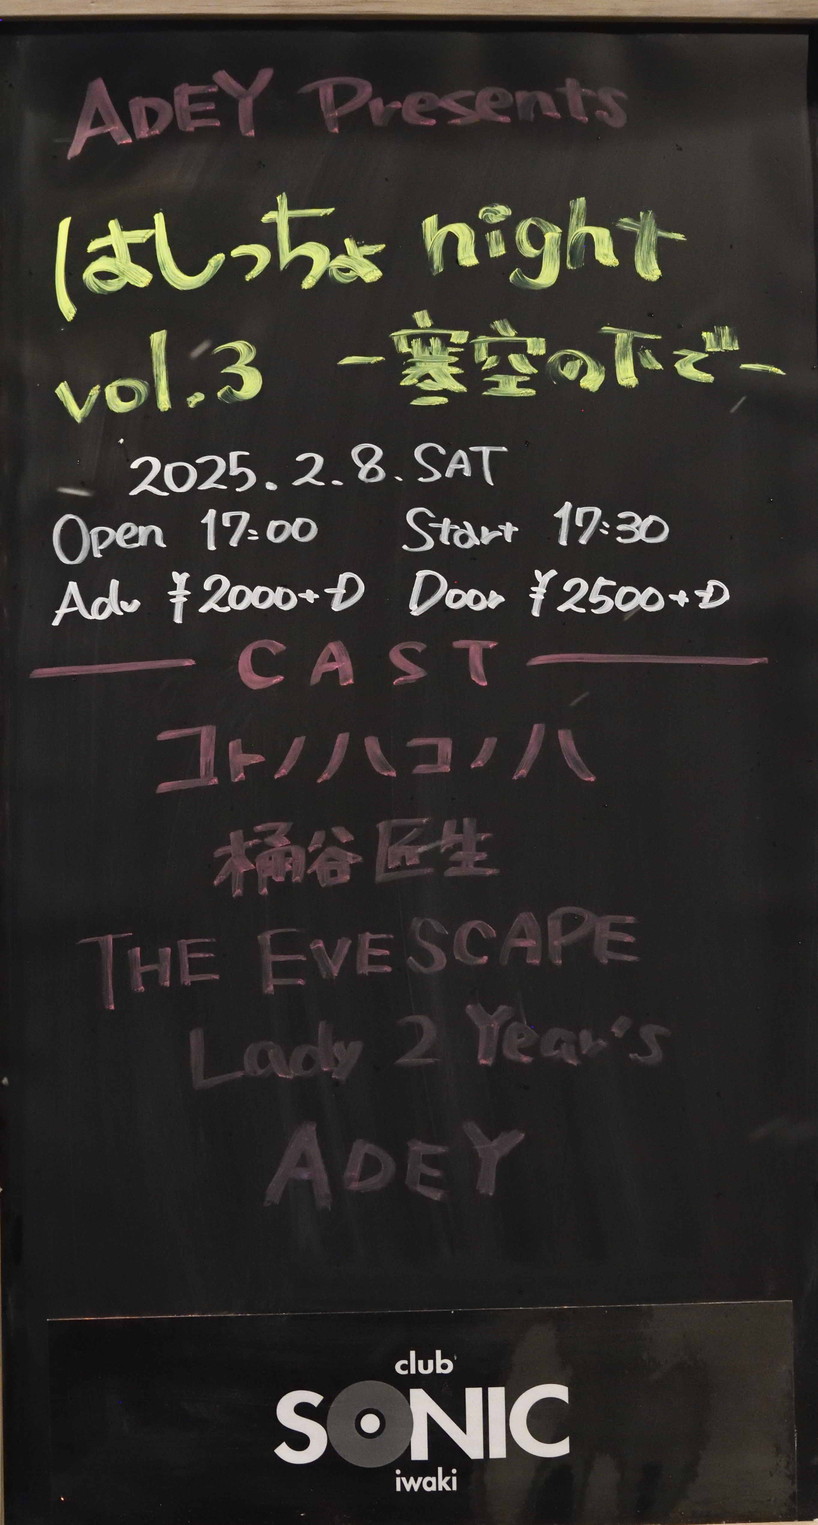 ADEY Presents
はしっちょ night
vol.3 -寒空の下で-
2025.2.8.SAT
Open 17:00 Start 17:30
Adv ¥2000+D Door ¥2500+D
CAST
コトノハコノハ
桶谷匠生
THE EVESCAPE
Lady 2 Year's
ADEY
club
SONIC
iwaki